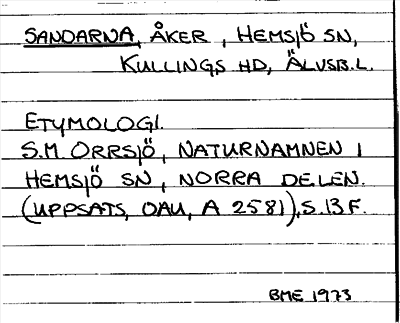 SANDARNA, ÅKER, HEMSJÖ SN,
KULLINGS HD, ÄLVSB.L.
ETYMOLOGI.
S.M. ORRSJÖ, NATURNAMNEN I
HEMSJÖ SN, NORRA DELEN.
(UPPSATS, OAU, A 2581), S. 13 F.
BME 1973